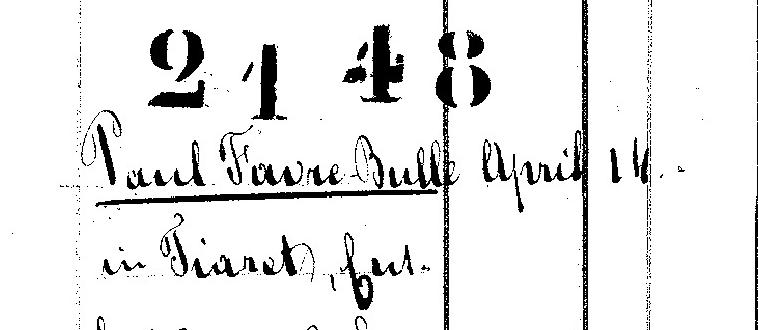 2148
Paul Favre-Bulle April 14.
in Tiaret,